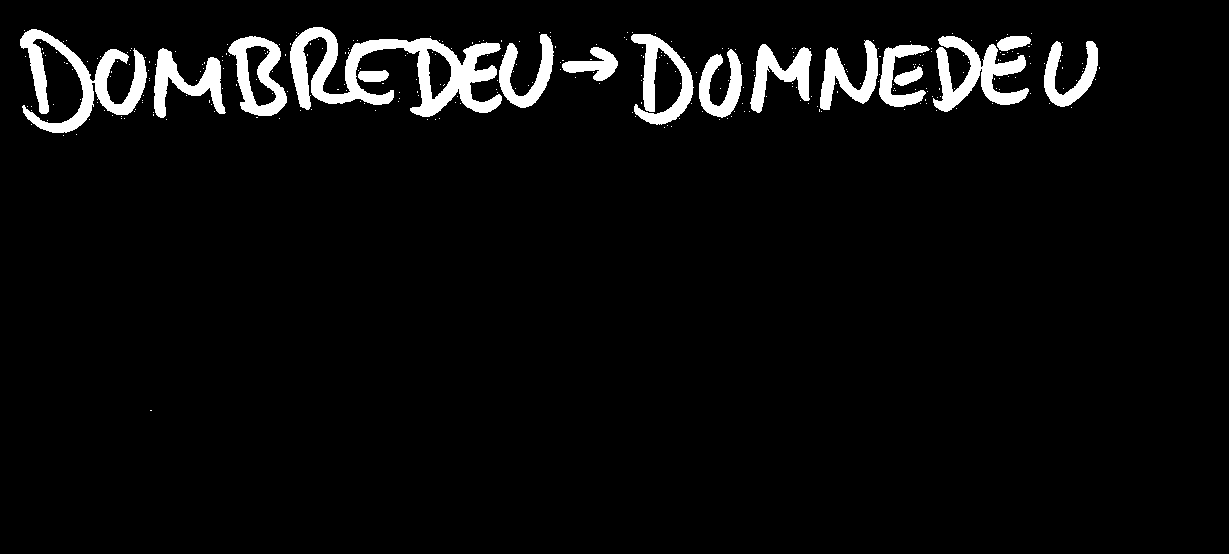 DOMBREDEU → DOMNEDEU